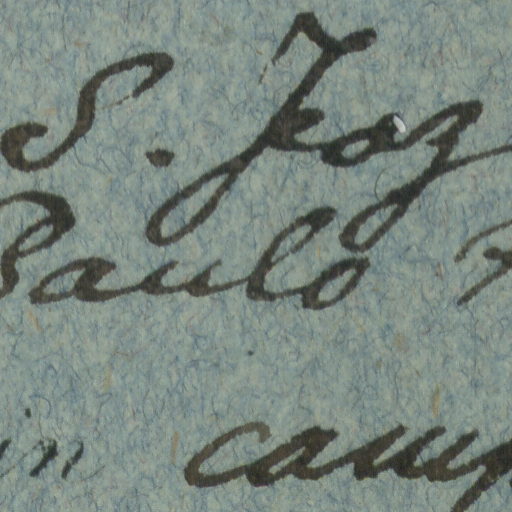 S. Joz
Paulo
in camp